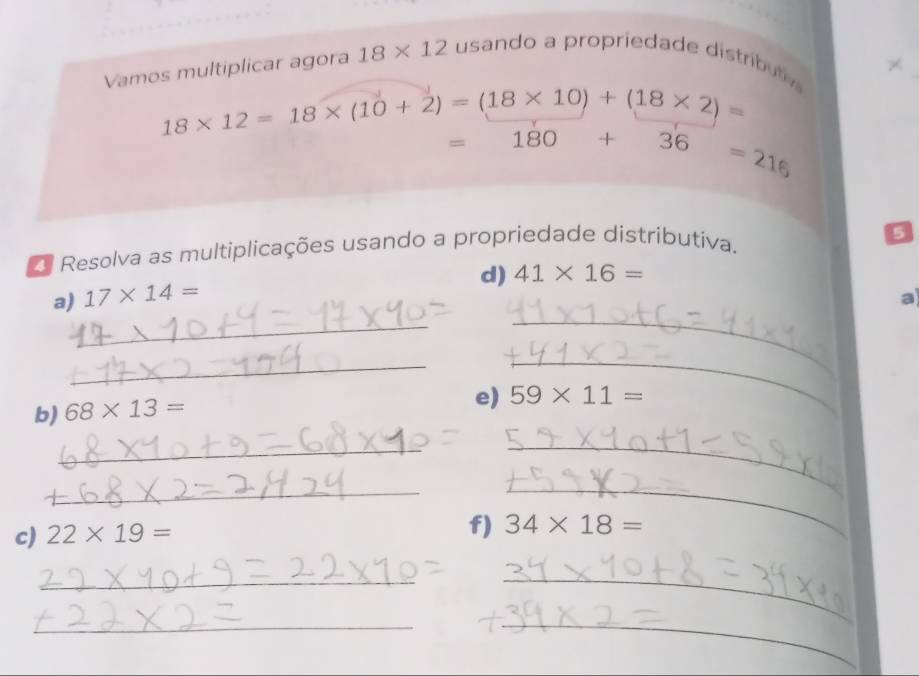 Vamos multiplicar agora 18 × 12 usando a propriedade distributiva
18 × 12 = 18 × (10 + 2) = (18 × 10) + (18 × 2) =
= 180 + 36 = 216
4 Resolva as multiplicações usando a propriedade distributiva.
a) 17 × 14 =
17 × 10 + 4 = 17 × 10 =
+ 17 × 2 =
b) 68 × 13 =
68 × 10 + 9 = 68 × 10 =
+ 68 × 2 =
c) 22 × 19 =
22 × 10 + 9 = 22 × 10 =
+ 22 × 2 =
d) 41 × 16 =
41 × 10 + 6 = 41 × 10
+ 41 × 2 =
e) 59 × 11 =
59 × 10 + 1 = 59 × 10
+ 59 × 2 =
f) 34 × 18 =
34 × 10 + 8 = 34 × 10
+ 34 × 2 =
5
a)